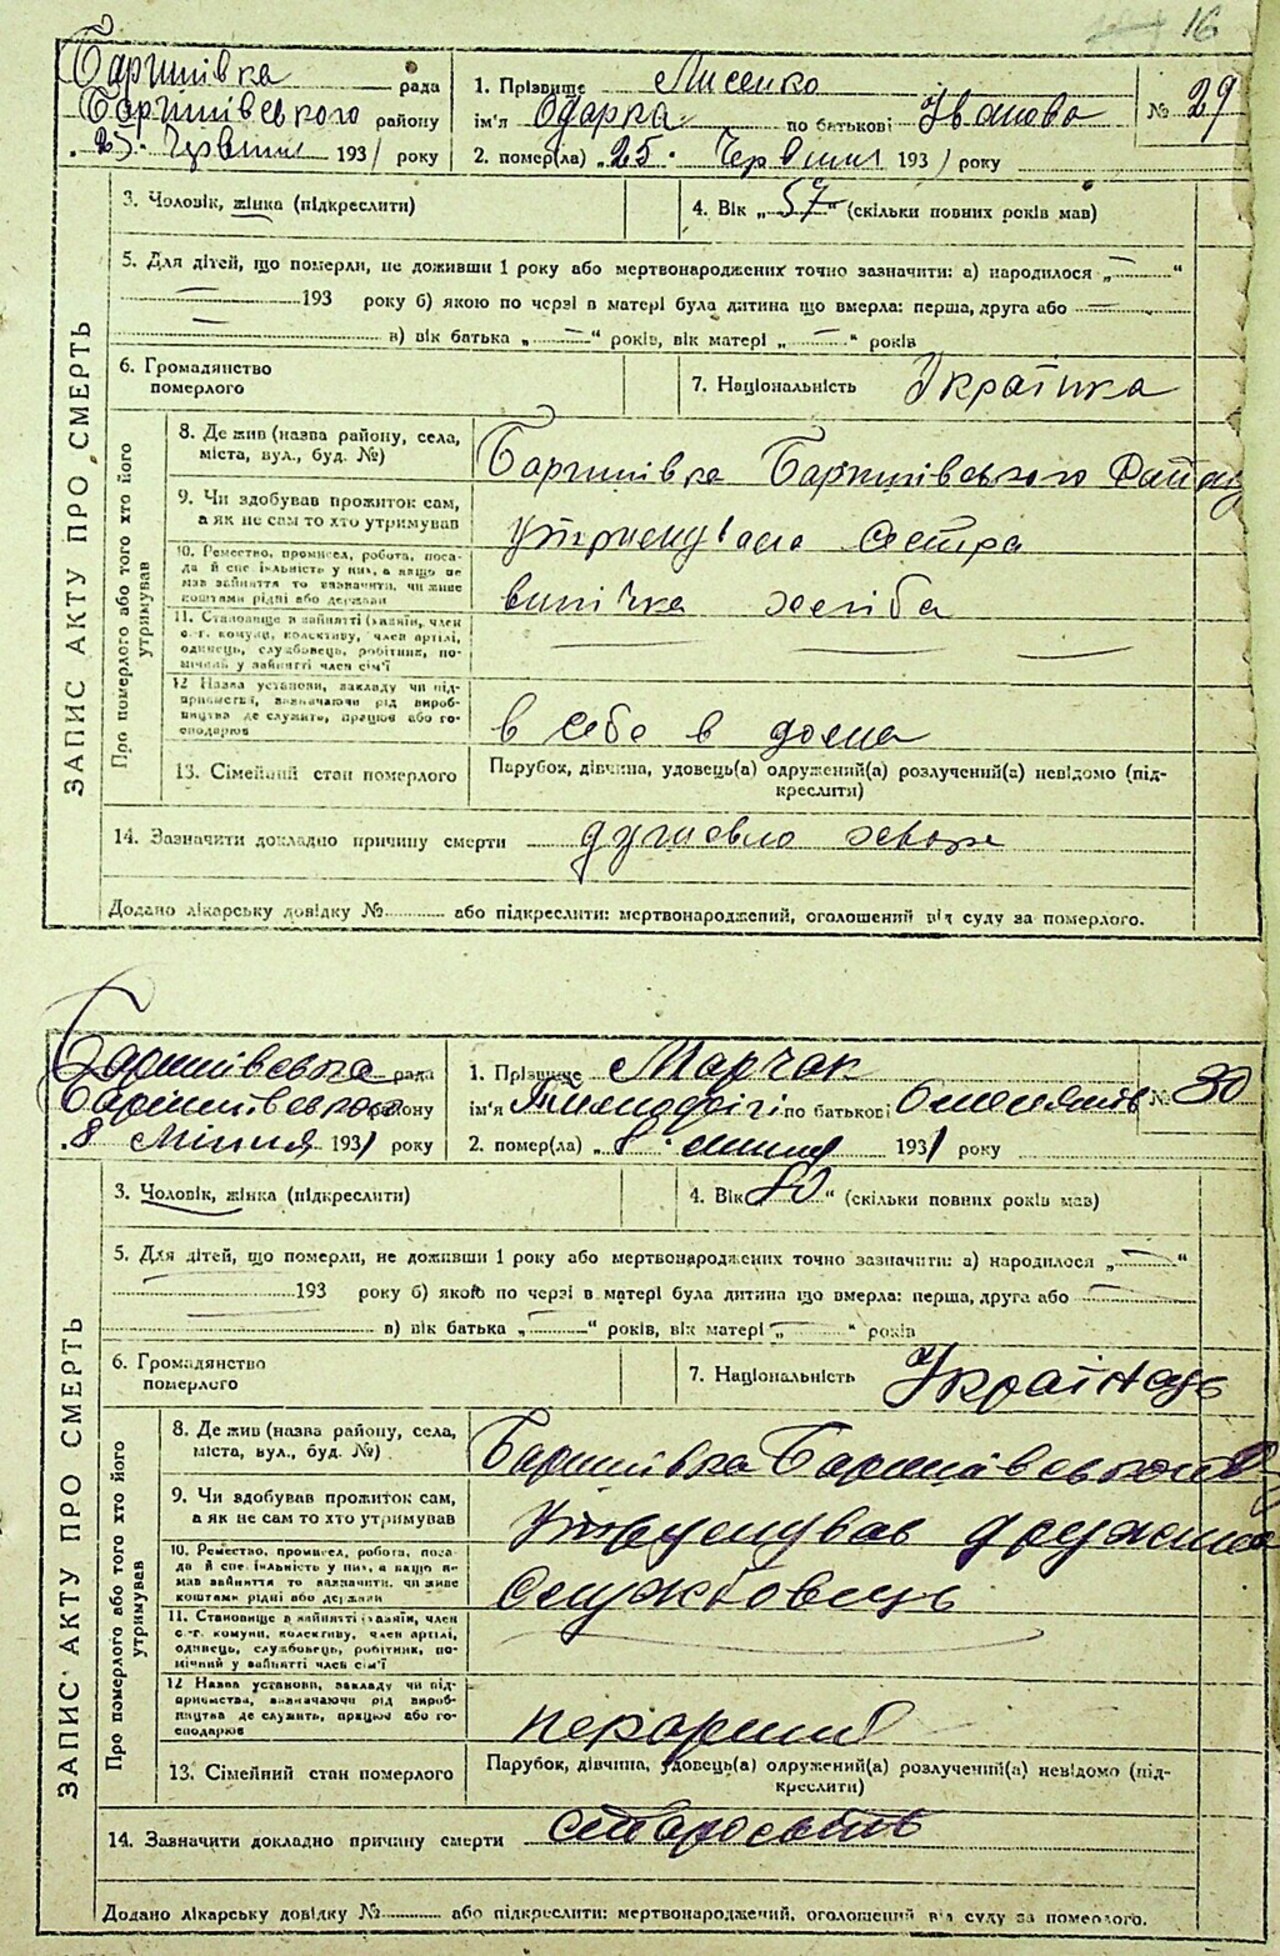 16
Баришівка рада
Баришівського району
"25" Червня 1931 року
1. Прізвище Лисенко
ім'я Одарка по батькові Іванова
№ 29
2. помер(ла) "25" Червня 1931 року
3. Чоловік, жінка (підкреслити)
4. Вік „57“ (скільки повних років мав)
5. Для дітей, що померли, не доживши 1 року або мертвонароджених точно зазначити: а) народилося „—“
— 193 року б) якою по черзі в матері була дитина що вмерла: перша, друга або —
— в) вік батька „—“ років, вік матері „—“ років
6. Громадянство
померлого
7. Національність Українка
ЗАПИС АКТУ ПРО СМЕРТЬ
Про померлого або того хто його
утримував
8. Де жив (назва району, села,
міста, вул., буд. №)
Баришівка Баришівського
9. Чи здобував прожиток сам,
а як не сам то хто утримував
сестра
10. Ремество, промисел, робота, поса-
да й спеціяльність у них, а якщо не
мав зайняття то зазначити, чи живе
коштами рідні або держави
випічка хліба
11. Становище в зайнятті (хазяїн, член
с.-г. комуни, колективу, член артілі,
одинець, службовець, робітник, по-
мічний у зайнятті член сім'ї
— — —
12 Назва установи, закладу чи під-
приємства, зазначаючи рід вироб-
ництва де служить, працює або го-
сподарює
в себе в дома
13. Сімейний стан померлого
Парубок, дівчина, удовець(а) одружений(а) розлучений(а) невідомо (під-
креслити)
14. Зазначити докладно причину смерти душевно
Додано лікарську довідку № або підкреслити: мертвонароджений, оголошений від суду за померлого.
Баришівська рада
Баришівського району
"8" Липня 1931 року
1. Прізвище Марчак
ім'я по батькові
№ 30
2. помер(ла) "8" липня 1931 року
3. Чоловік, жінка (підкреслити)
4. Вік „80“ (скільки повних років мав)
5. Для дітей, що померли, не доживши 1 року або мертвонароджених точно зазначити: а) народилося „—“
— 193 року б) якою по черзі в матері була дитина що вмерла: перша, друга або —
— в) вік батька „—“ років, вік матері „—“ років
6. Громадянство
померлого
7. Національність Українець
ЗАПИС АКТУ ПРО СМЕРТЬ
Про померлого або того хто його
утримував
8. Де жив (назва району, села,
міста, вул., буд. №)
Баришівка Баришівського
9. Чи здобував прожиток сам,
а як не сам то хто утримував
10. Ремество, промисел, робота, поса-
да й спеціяльність у них, а якщо не
мав зайняття то зазначити, чи живе
коштами рідні або держави
Службовець
11. Становище в зайнятті (хазяїн, член
с.-г. комуни, колективу, член артілі,
одинець, службовець, робітник, по-
мічний у зайнятті член сім'ї
12 Назва установи, закладу чи під-
приємства, зазначаючи рід вироб-
ництва де служить, працює або го-
сподарює
13. Сімейний стан померлого
Парубок, дівчина, удовець(а) одружений(а) розлучений(а) невідомо (під-
креслити)
14. Зазначити докладно причину смерти
Додано лікарську довідку № або підкреслити: мертвонароджений, оголошений від суду за померлого.